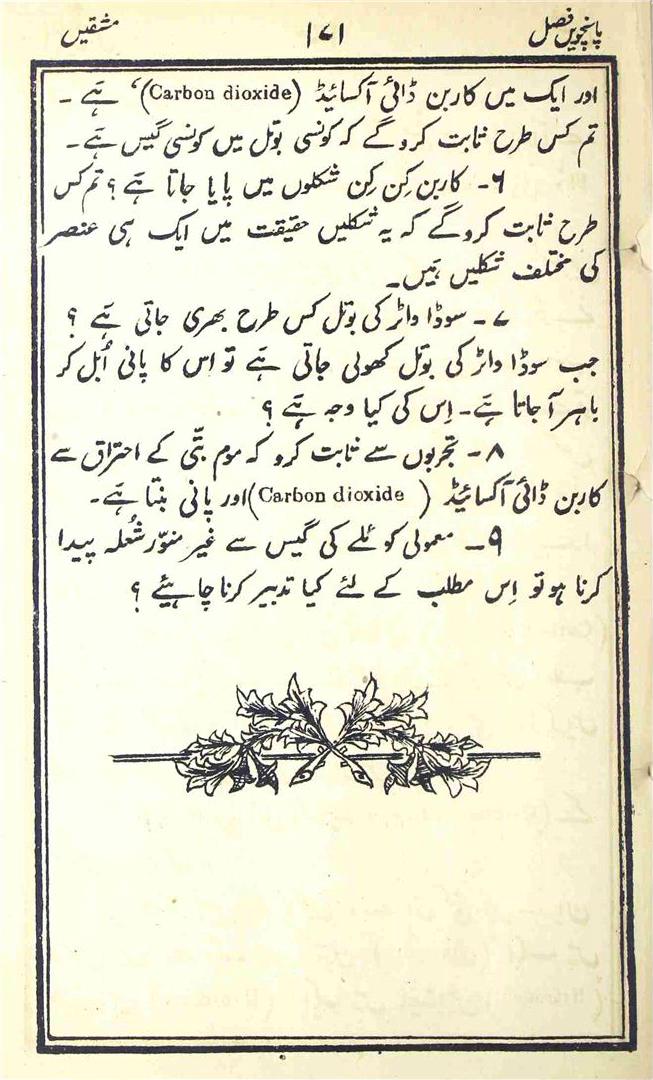 پانچویں فصل ۱۷۱ مشقیں
اور ایک میں کاربن ڈائی آکسائیڈ (Carbon dioxide)‘ ہے ۔
تم کس طرح ثابت کروگے کہ کونسی بوتل میں کونسی گیس ہے۔
۶۔ کاربن کِن کِن شکلوں میں پایا جاتا ہے ؟ تم کس
طرح ثابت کروگے کہ یہ شکلیں حقیقت میں ایک ہی عنصر
کی مختلف شکلیں ہیں۔
۷۔ سوڈا واٹر کی بوتل کس طرح بھری جاتی ہے ؟
جب سوڈا واٹر کی بوتل کھولی جاتی ہے تو اس کا پانی اُبل کر
باہر آجاتا ہے۔ اِس کی کیا وجہ ہے ؟
۸۔ تجربوں سے ثابت کرو کہ موم بتّی کے احتراق سے
کاربن ڈائی آکسائیڈ (Carbon dioxide) اور پانی بنتا ہے۔
۹۔ معمولی کوئلے کی گیس سے غیر منوّر شُعلہ پیدا
کرنا ہو تو اِس مطلب کے لئے کیا تدبیر کرنا چاہیئے ؟